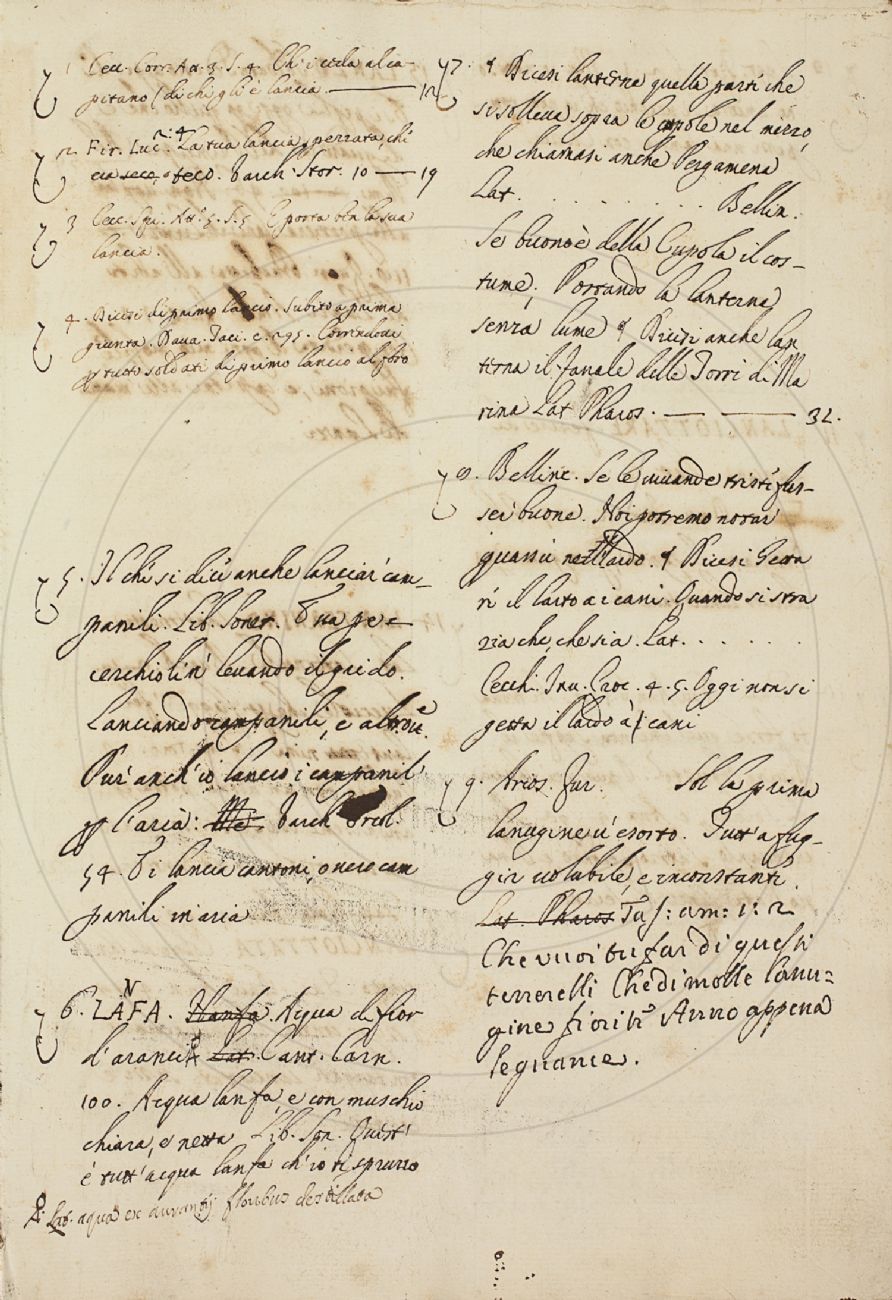 1 Cecc. Corr. At. 3. S. 4. Chi cicla al ca-
pitano /di chi gli è lancia ——— 12
2 Fir. Luc. 2. 4 La tua lancia spezzata, chi
cia seco, o teco. Varch. Stor. 10 —— 19
3 Cecc. Spi. At. 5. S. 5 E porta con la sua
lancia.
4. Dicesi di primo lancio. Subito a prima
giunta. Dava. Taci. c. 295.
tutto soldati di primo lancio al foro
5. Il che si dice anche lanciar cam-
panili. Lib. Sonet. Tu a pe e
cerchiolin levando il grido.
Lanciando campanili, e altrove.
Pur anch' io lancio i campanil
p l'aria: Me. Varch. Ercol.
54. Si lancia cantoni, o nero cam
panili in aria
6. LANFA. Nanfa. Acqua di fior
d'aranci # Lat. Cant. Carn.
100. Acqua lanfa, e con muschio
chiara, e netta. Lib. Son. Quest'
è tutt' acqua lanfa ch' io ti spruzzo
#. Lat. aqua ex aurantij floribus destillata
7. ¶ Dicesi lanterna quella parte che
si solleva sopra le cupole nel mezzo,
che chiamasi anche Pergamena
Lat. . . . . . . . . . . Bellin.
Se buono è della Cupola il cos-
tume, Portando la lanterna
senza lume ¶ Dicesi anche lan
terna il fanale delle Torri di Ma
rina Lat Pharos. —— —— 32.
8. Bellinc. Se le vivande tristi fus-
ser buone. Noi potremo notar
quassù nel lardo. ¶ Dicesi Getta
re il lardo a i cani. Quando si stra
zia che, che sia. Lat. . . . . .
Cecchi. Inc. Croc. 4. 5. Oggi non si
getta il lardo a' cani
9. Arios. Fur. Sol la prima
lanugine v' esorto. Tutt' a fug-
gir volubile, e inconstanti.
Lat. Pharos Tas: am: 1: 2
Che vuoi tu far di questi
tenerelli Che di molle lanu=
gine fioriti Anno appena
le guance.